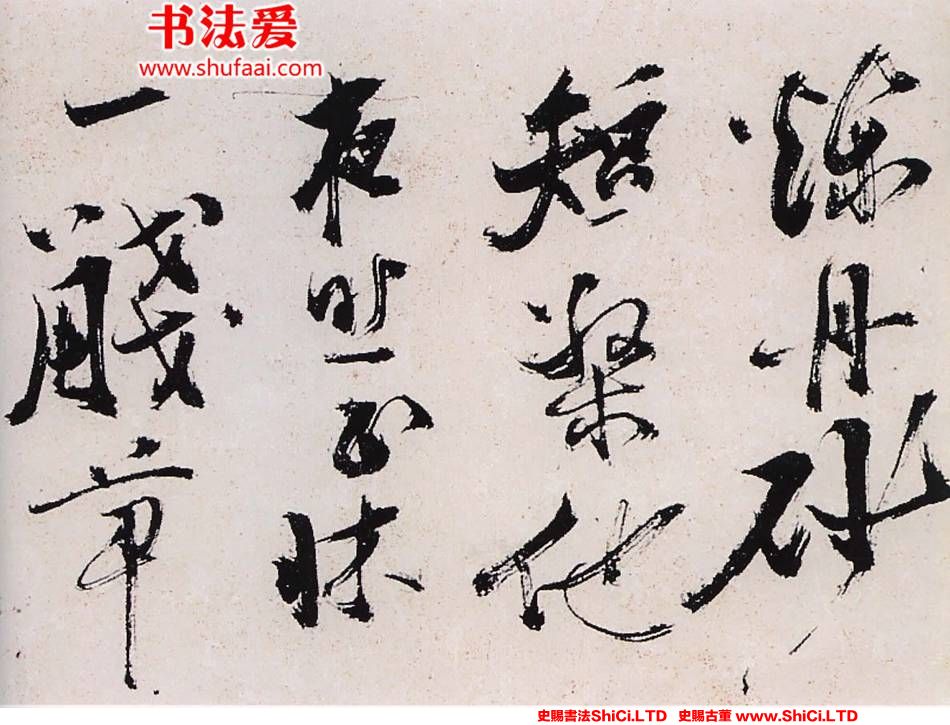 书法爱
www.shufaai.com
煉丹砂
短檠他
夜照
一
史賜書法ShiCi.LTD 史賜古董 www.ShiCi.LTD